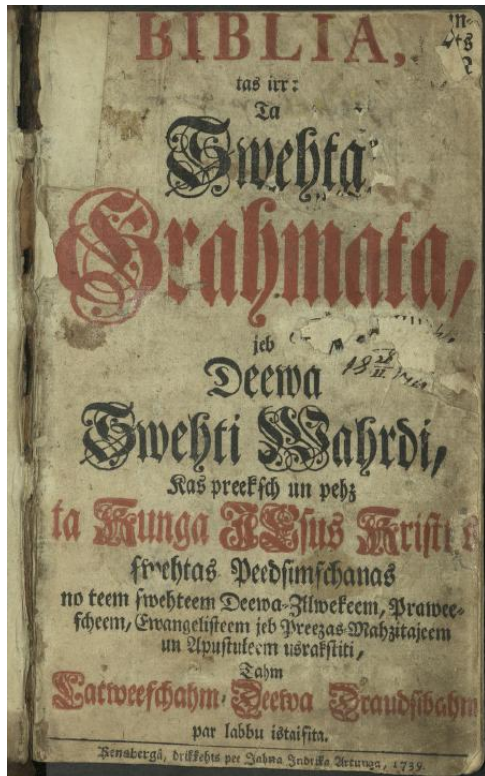 BIBLIA,
tas irr:
Ta
Swehta
Grahmata,
jeb
Deewa
Swehti Wahrdi,
Kas preeksch un pehz
ta Kunga JEsus Kristi
swehtas Peedsimschanas
no teem swehteem Deewa-Zilwekeem, Prawee-
scheem, Ewangelisteem jeb Preezas-Mahzitajeem
un Apustuleem usrakstiti,
Tahm
Latweeschahm-Deewa Draudsibahm
par labbu istaisita.
Kensbergâ, drikkehts pee Jahna Indrika Artunga, 1739.